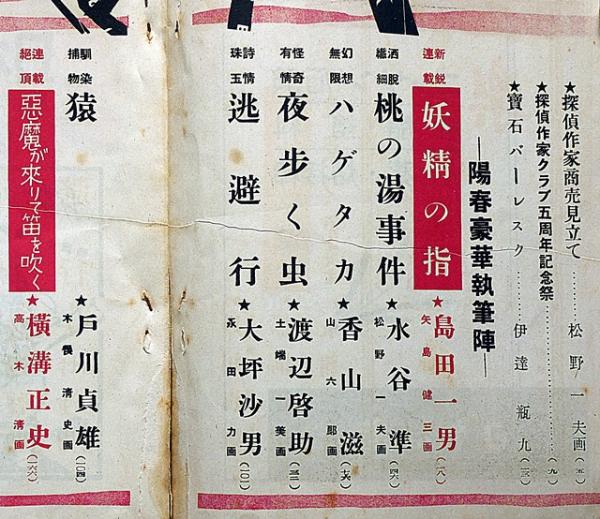 ★探偵作家商売見立て…………松野一夫画(五)
★探偵作家クラブ五周年記念祭…………(九)
★寶石バーレスク…………伊達瓶九(三)
—陽春豪華執筆陣—
新鋭連載 妖精の指★島田一男(八)
矢島健三画
洒脱繊細 桃の湯事件★水谷準(四六)
松野一夫画
幻想無限 ハゲタカ★香山滋
山六郎画
怪奇有情 夜歩く虫★渡辺啓助
土端一美画
詩情珠玉 逃避行★大坪沙男(一〇一)
永田力画
馴染捕物 猿★戸川貞雄(一〇四)
木俣清史画
連載絶頂 惡魔が來りて笛を吹く★橫溝正史(一六六)
高木清画